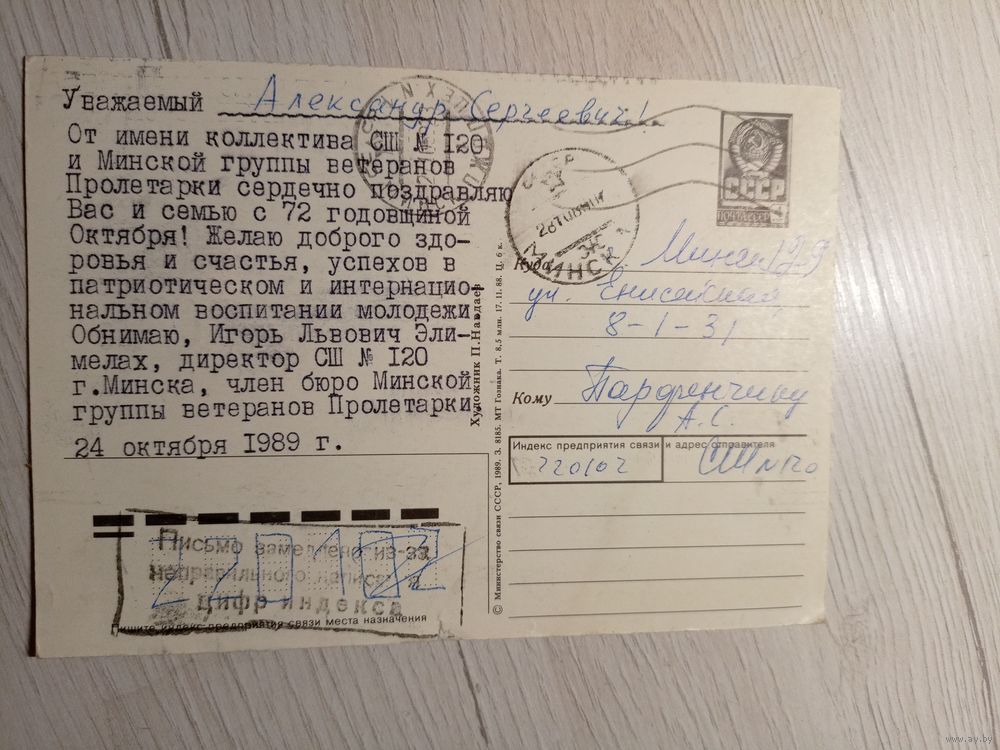 Уважаемый Александр Сергеевич!
От имени коллектива СШ № 120
и Минской группы ветеранов
Пролетарки сердечно поздравляю
Вас и семью с 72 годовщиной
Октября! Желаю доброго здо-
ровья и счастья, успехов в
патриотическом и интернацио-
нальном воспитании молодежи.
Обнимаю, Игорь Львович Эли-
мелах, директор СШ № 120
г.Минска, член бюро Минской
группы ветеранов Пролетарки.
24 октября 1989 г.
Письмо замедлено из-за
неправильного написания
цифр индекса
Пишите индекс предприятия связи места назначения
Художник П.Навдаев
© Министерство связи СССР, 1989. З. 8185. МТ Гознака. Т. 8,5 млн. 17. 11. 88. Ц. 6 к.
СССР
ПОЧТА СССР
МИНСК
Куда Минск
ул. Енисейская
8-1-31
Кому Парфенчику
А.С.
Индекс предприятия связи и адрес отправителя
220102 СШ № 120
www.ay.by